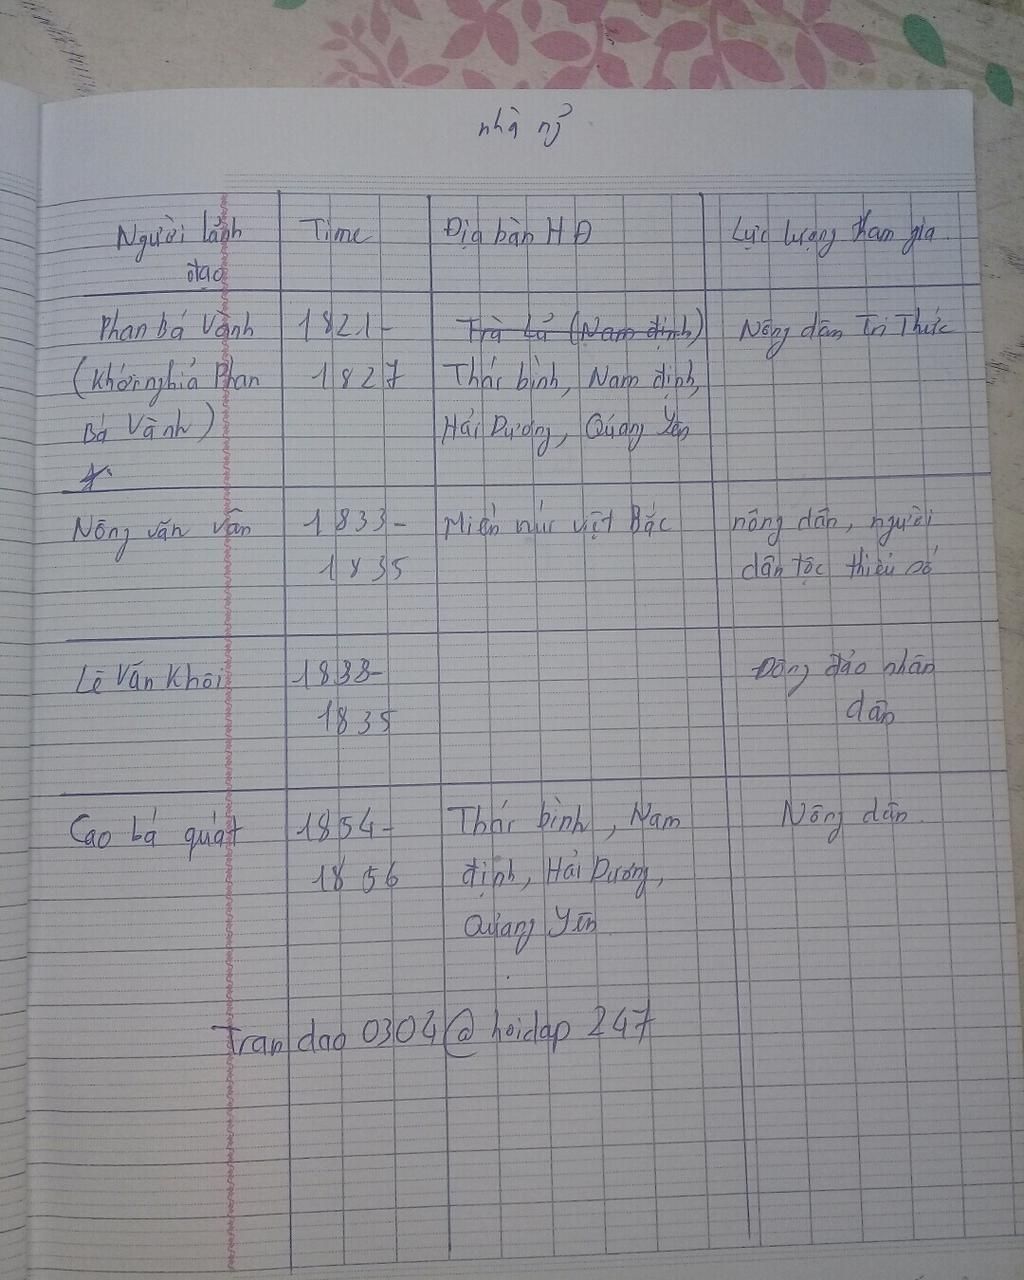 nhà ng̉
Người lảnh Time Địa bàn HĐ Lực lượng tham gia
đạo
Phan bá Vành 1821- Trà Lủ (Nam định) Nông dân Trí Thức
(Khởi nghỉa Phan 1827 Thái bình, Nam định,
Bá Vành) Hải Dương, Quảng Yên
Nông văn vân 1833- Miền núi việt Bắc nông dân, người
1835 dân tộc thiểu số
Lê Văn Khôi 1833- Đông đảo nhân
1835 dân
Cao bá quát 1854- Thái bình, Nam Nông dân
1856 định, Hải Dương,
Quảng Yên
Tran dao 0304@hoidap 247